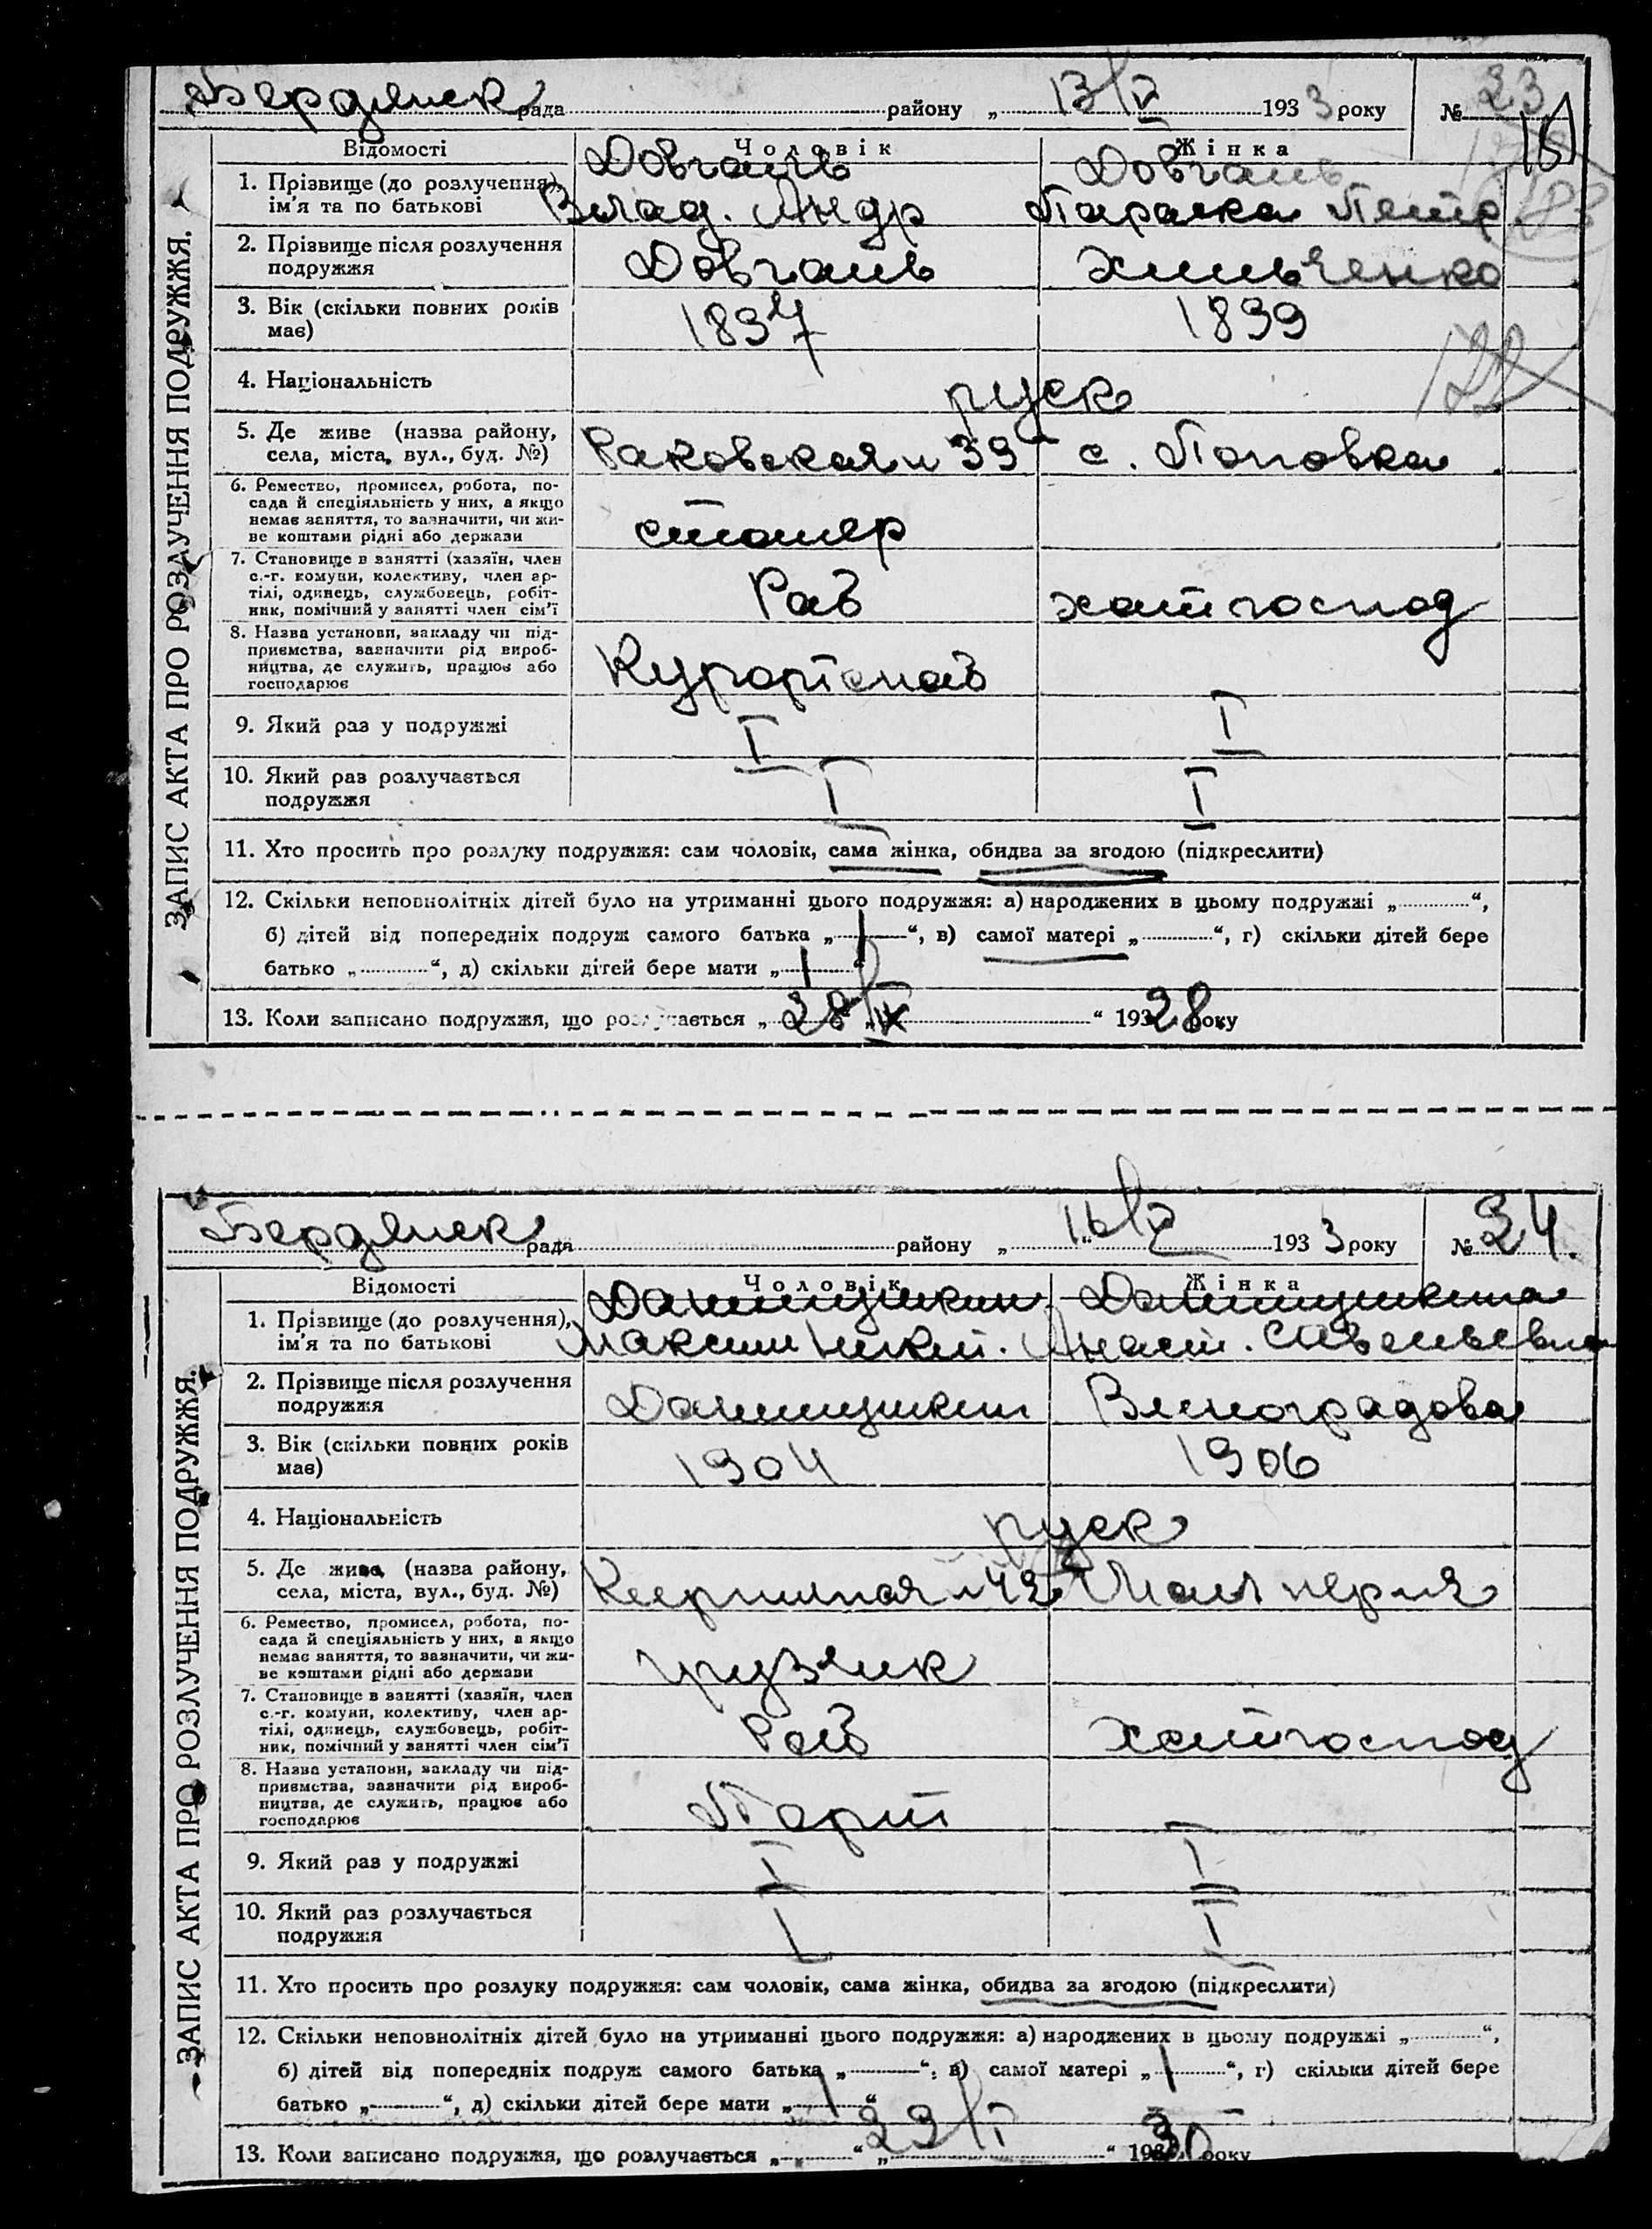 Бердянск рада району „ 13/V 1933 року № 23
Відомості Чоловік Жінка
1. Прізвище (до розлучення), Довгань Довгань
ім'я та по батькові Влад. Андр Параска Петр
2. Прізвище після розлучення
подружжя Довгань Хильченко
3. Вік (скільки повних років
має) 1897 1899
4. Національність руск
5. Де живе (назва району,
села, міста, вул., буд. №) Раковская н 39 с. Поповка
6. Ремество, промисел, робота, по-
сада й спеціяльність у них, а якщо
немає заняття, то зазначити, чи жи-
ве коштами рідні або держави столяр
7. Становище в занятті (хазяїн, член
с.-г. комуни, колективу, член ар-
тілі, одинець, службовець, робіт-
ник, помічний у занятті член сім'ї Раб хатгоспод
8. Назва установи, закладу чи під-
приємства, зазначити рід вироб-
ництва, де служить, працює або
господарює Курортснаб
9. Який раз у подружжі I I
10. Який раз розлучається
подружжя I I
11. Хто просить про розлуку подружжя: сам чоловік, сама жінка, обидва за згодою (підкреслити)
12. Скільки неповнолітніх дітей було на утриманні цього подружжя: а) народжених в цьому подружжі „ “,
б) дітей від попередніх подруж самого батька „ “, в) самої матері „ “, г) скільки дітей бере
батько „ “, д) скільки дітей бере мати „ 1 “
13. Коли записано подружжя, що розлучається „ 28 “ 1928 року
ЗАПИС АКТА ПРО РОЗЛУЧЕННЯ ПОДРУЖЖЯ.
Бердянск рада району „ 16/V 1933 року № 24.
Відомості Чоловік Жінка
1. Прізвище (до розлучення), Данилушкин Данилушкина
ім'я та по батькові Максим Никит. Анаст. Савельевна
2. Прізвище після розлучення
подружжя Данилушкин Виноградова
3. Вік (скільки повних років
має) 1904 1906
4. Національність руск
5. Де живе (назва району,
села, міста, вул., буд. №)
6. Ремество, промисел, робота, по-
сада й спеціяльність у них, а якщо
немає заняття, то зазначити, чи жи-
ве коштами рідні або держави грузчик
7. Становище в занятті (хазяїн, член
с.-г. комуни, колективу, член ар-
тілі, одинець, службовець, робіт-
ник, помічний у занятті член сім'ї Раб хатгоспод
8. Назва установи, закладу чи під-
приємства, зазначити рід вироб-
ництва, де служить, працює або
господарює Порт
9. Який раз у подружжі I I
10. Який раз розлучається
подружжя I I
11. Хто просить про розлуку подружжя: сам чоловік, сама жінка, обидва за згодою (підкреслити)
12. Скільки неповнолітніх дітей було на утриманні цього подружжя: а) народжених в цьому подружжі „ “,
б) дітей від попередніх подруж самого батька „ “, в) самої матері „ 1 “, г) скільки дітей бере
батько „ “, д) скільки дітей бере мати „ 1 “
13. Коли записано подружжя, що розлучається „ “ „ 29/I “ 1930 року
ЗАПИС АКТА ПРО РОЗЛУЧЕННЯ ПОДРУЖЖЯ.